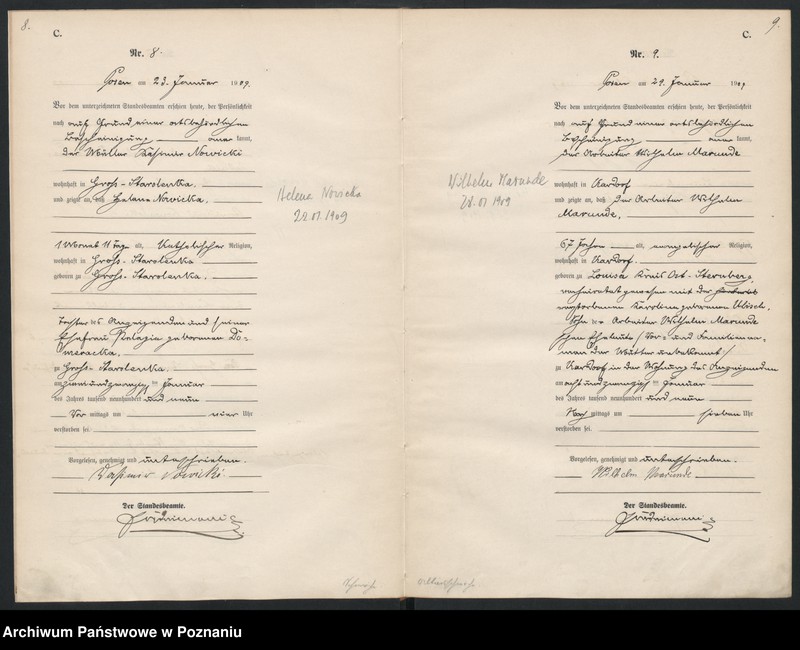 8.
C.
Nr. 8.
Posen am 23. Januar 1909.
Vor dem unterzeichneten Standesbeamten erschien heute, der Persönlichkeit
nach auf Grund einer ortsbehördlichen
Bescheinigung aner kannt,
der Müller Kasimir Nowicki
wohnhaft in Gross-Starolenka.
und zeigte an, daß Helene Nowicka.
1 Monat 11 Tag alt, Katholischer Religion,
wohnhaft in Gross-Starolenka
geboren zu Gross-Starolenka.
Tochter des Anzeigenden und seiner
Ehefrau Pelagia geborenen
zu Gross-Starolenka.
am zweiundzwanzig ten Januar
des Jahres tausend neunhundert und neun
Vor mittags um vier Uhr
verstorben sei.
Vorgelesen, genehmigt und unterschrieben.
Kasimir Nowicki.
Der Standesbeamte.
Helena Nowicka
22.01.1909
9.
C.
Nr. 9.
Posen am 29. Januar 1909
Vor dem unterzeichneten Standesbeamten erschien heute, der Persönlichkeit
nach auf Grund einer ortsbehördlichen
Bescheinigung aner kannt,
der Arbeiter Wilhelm Marunde
wohnhaft in
und zeigte an, daß der Arbeiter Wilhelm
Marunde.
67 Jahre alt, evangelischer Religion,
wohnhaft in
geboren zu Louisa Kreis Ost-Sternberg,
verheiratet gewesen mit der
verstorbenen Karoline geborenen
Sohn der Arbeiter Wilhelm Marunde
schen Eheleute /Vor- und Familienna-
men der Mutter unbekannt/
zu in der Wohnung des Anzeigenden
am achtundzwanzig ten Januar
des Jahres tausend neunhundert und neun
Nach mittags um sieben Uhr
verstorben sei.
Vorgelesen, genehmigt und unterschrieben.
Wilhelm Marunde
Der Standesbeamte.
Wilhelm Marunde
28.01.1909
Archiwum Państwowe w Poznaniu